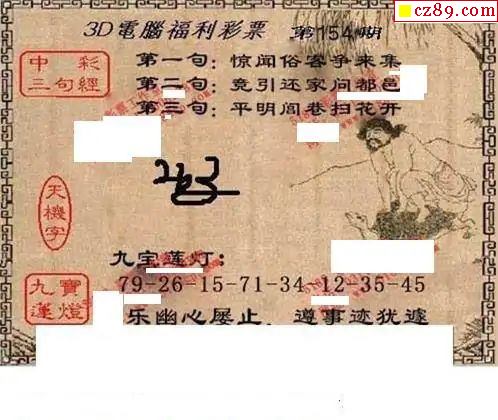 cz89.com
3D電腦福利彩票 第154期
中彩
三句經
第一句：惊闻俗客争来集
第二句：竞引还家问都邑
第三句：平明闾巷扫花开
天機字
九宝莲灯：
九寶
蓮燈
79-26-15-71-34 12-35-45
乐幽心屡止，遵事迹犹遽